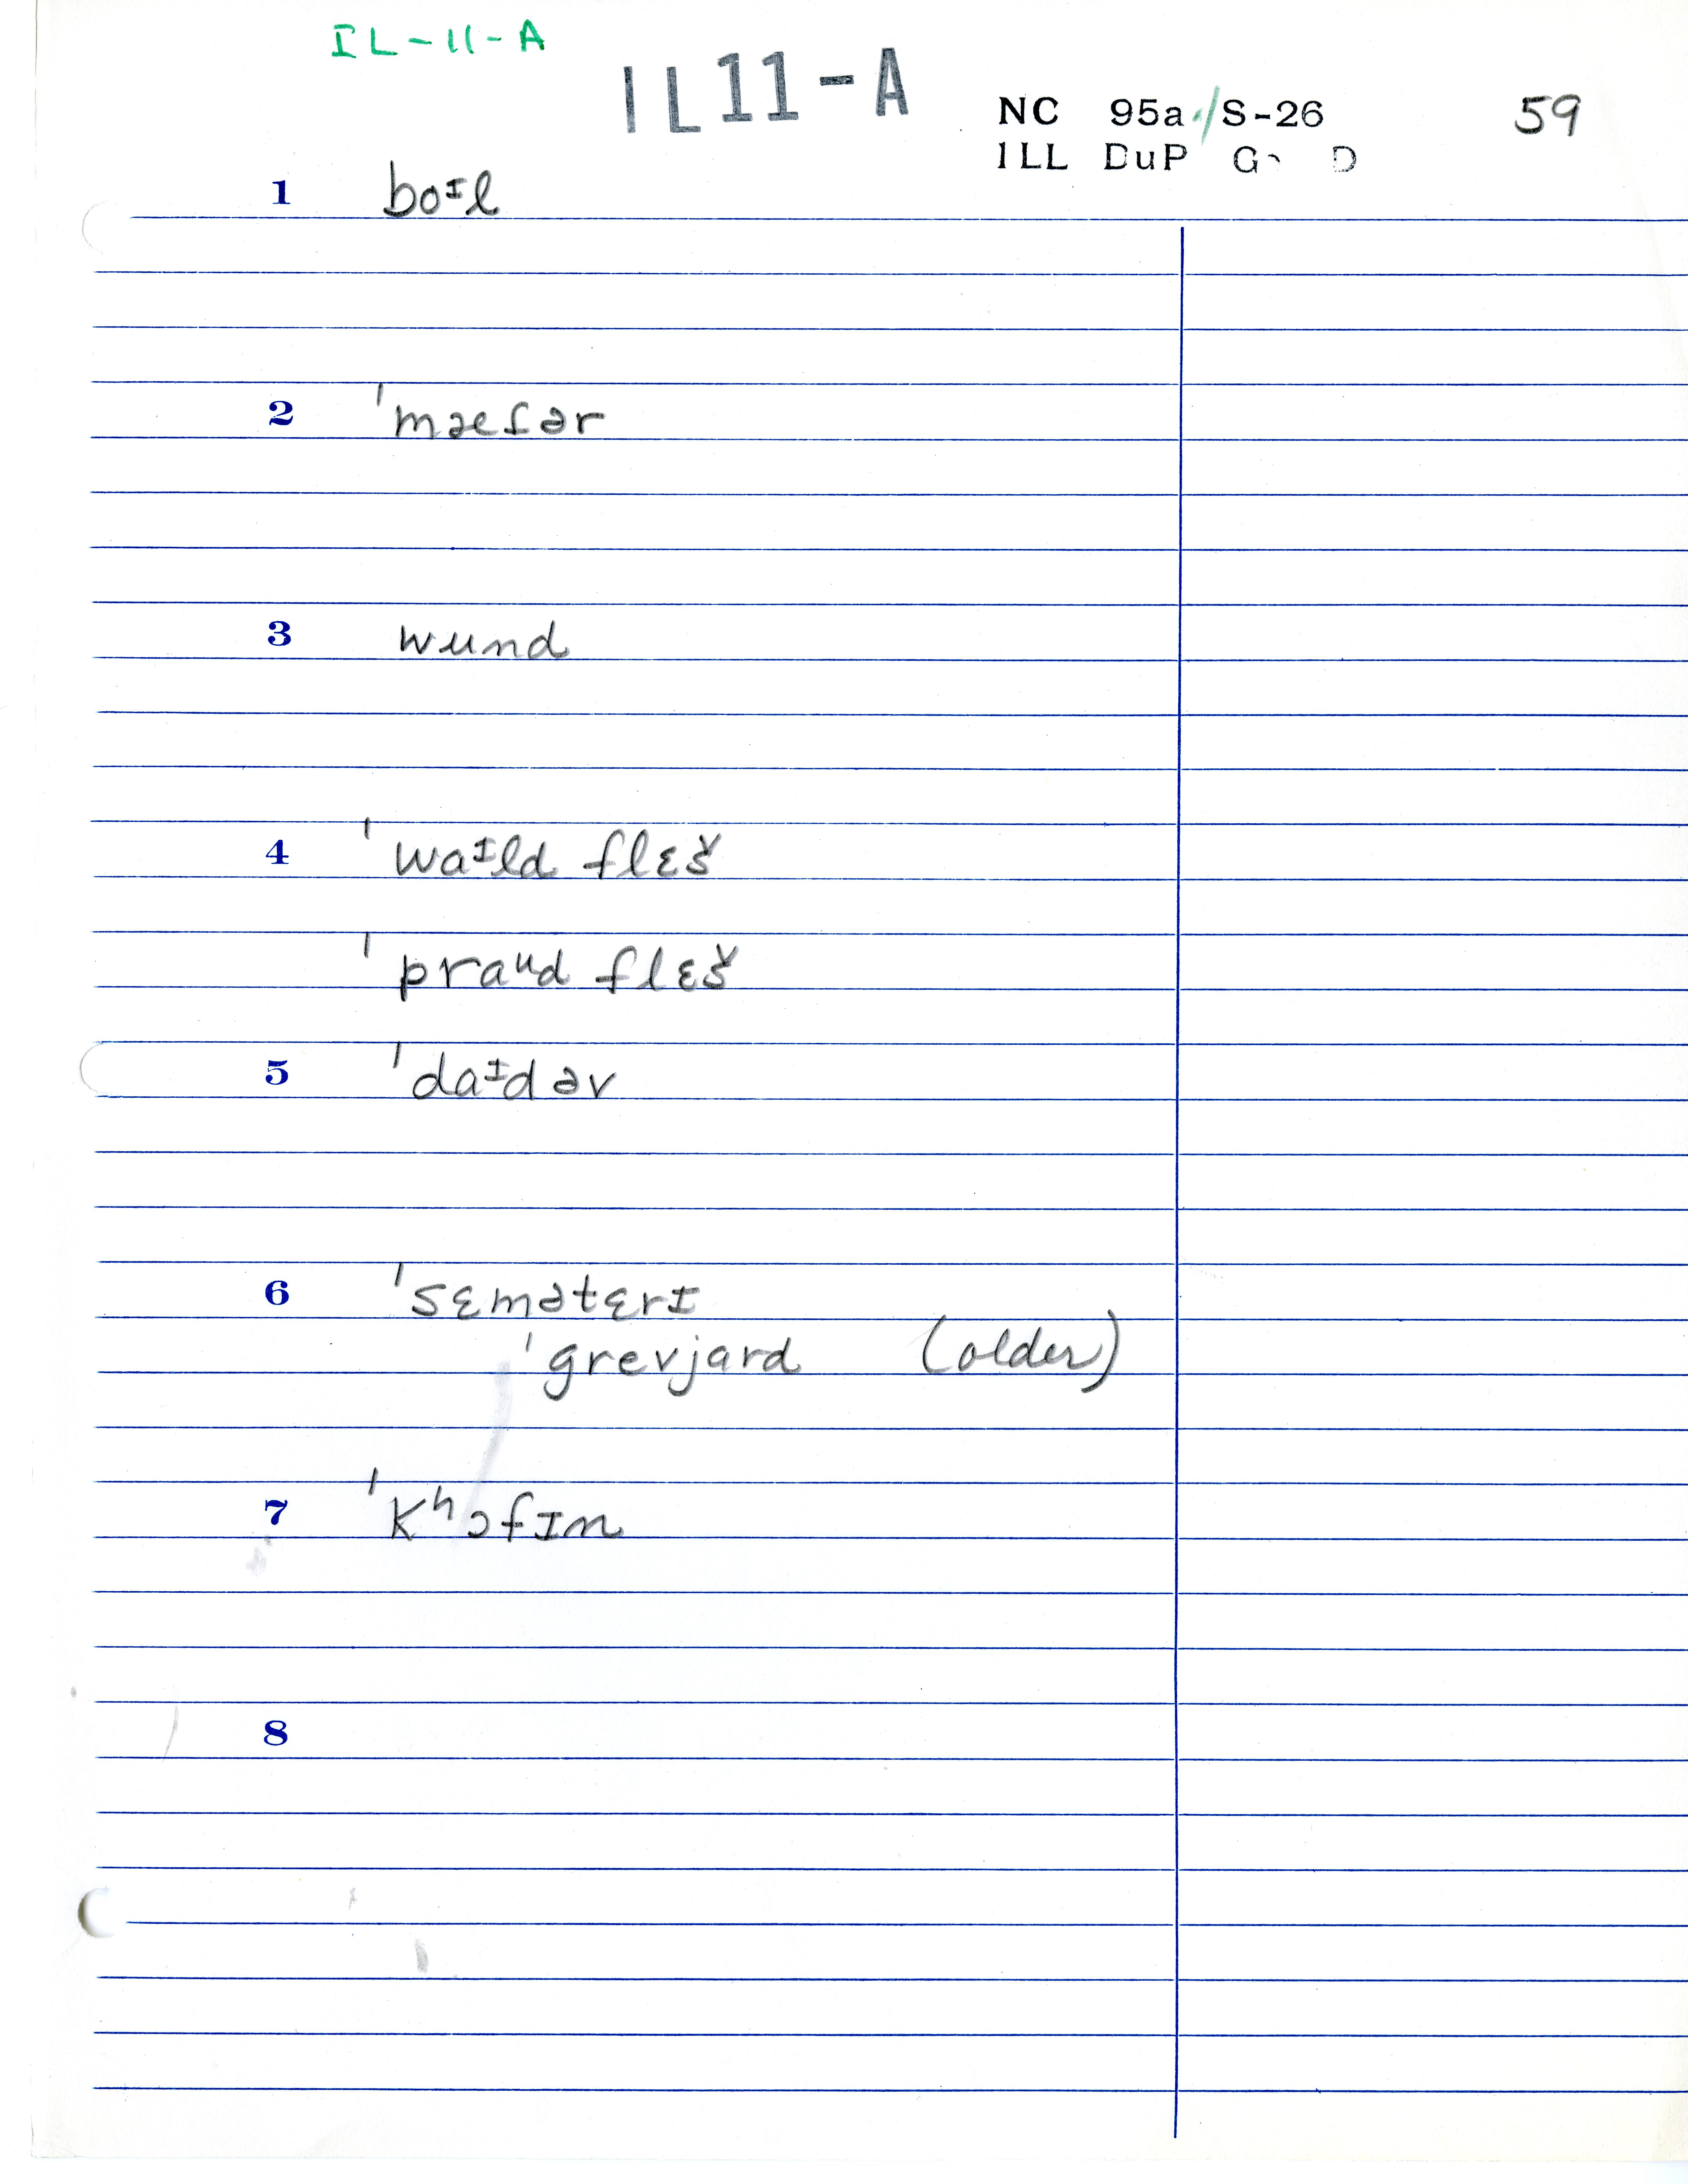 IL-11-A
IL11-A
NC 95a./S-26 59
ILL DuP
1 boᴵl
2 ˈmæfər
3 wund
4 ˈwaᴵld flɛš
ˈpraᵘd flɛš
5 ˈdaᴵd əv
6 ˈsɛmətɛrɪ
ˈgrevjard (older)
7 ˈkʰɔfɪn
8